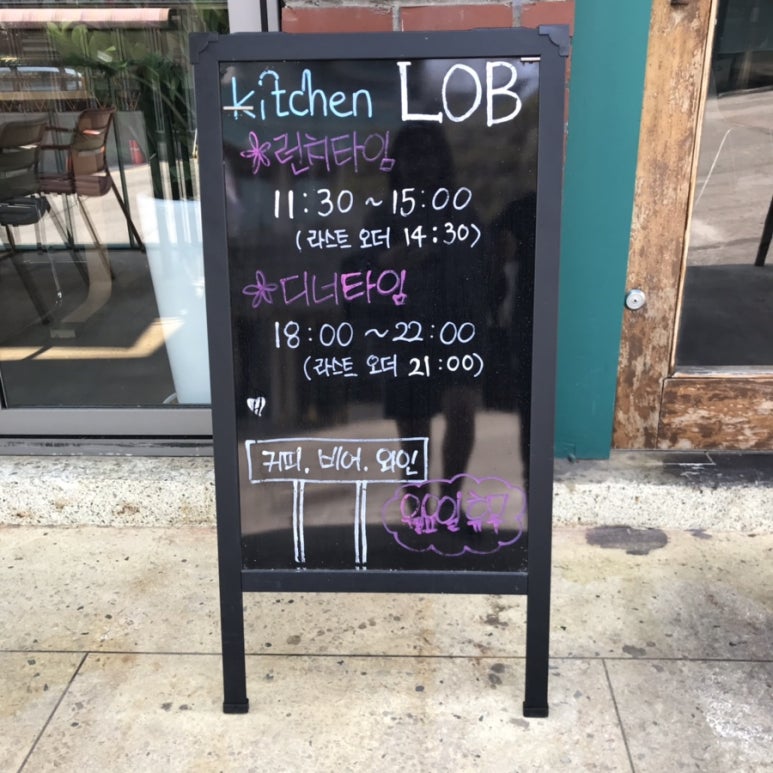 kitchen LOB
런치타임
11:30 ~ 15:00
(라스트 오더 14:30)
디너타임
18:00 ~ 22:00
(라스트 오더 21:00)
커피. 비어. 와인
월요일 휴무